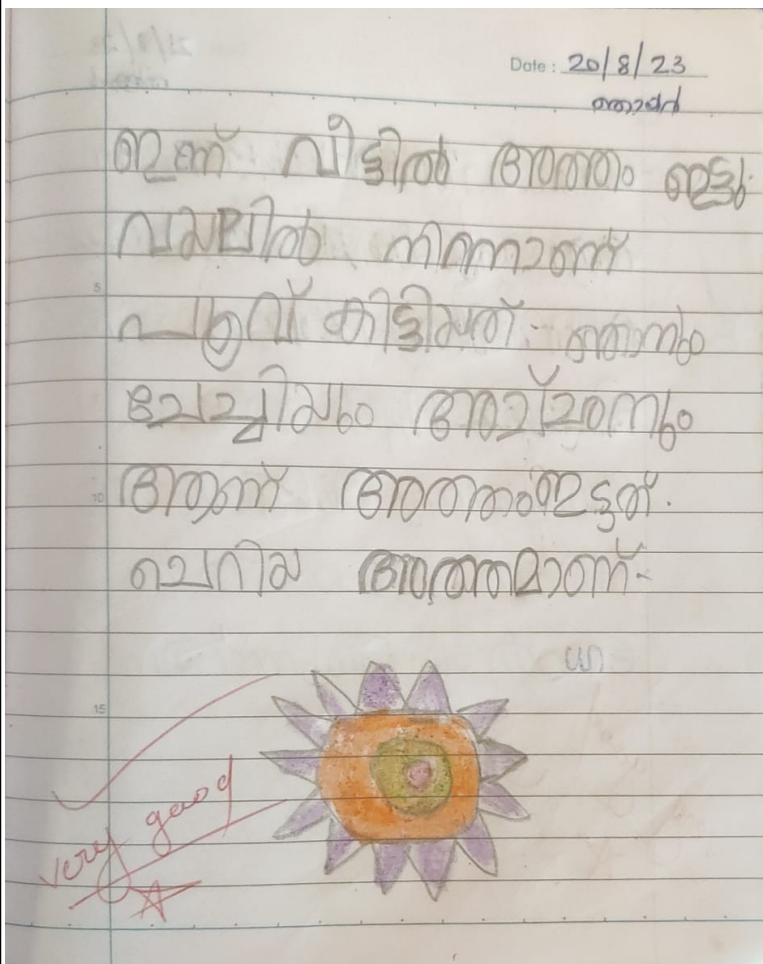 Date : 20/8/23
ഞായർ
ഇന്ന് വീട്ടിൽ അത്തം ഇട്ടു.
വയലിൽ നിന്നാണ്
പൂവ് കിട്ടിയത്. ഞാനും
ചേച്ചിയും അച്ഛനും
ആണ് അത്തം ഇട്ടത്.
ചെറിയ അത്തമാണ്.
5
10
15
very good